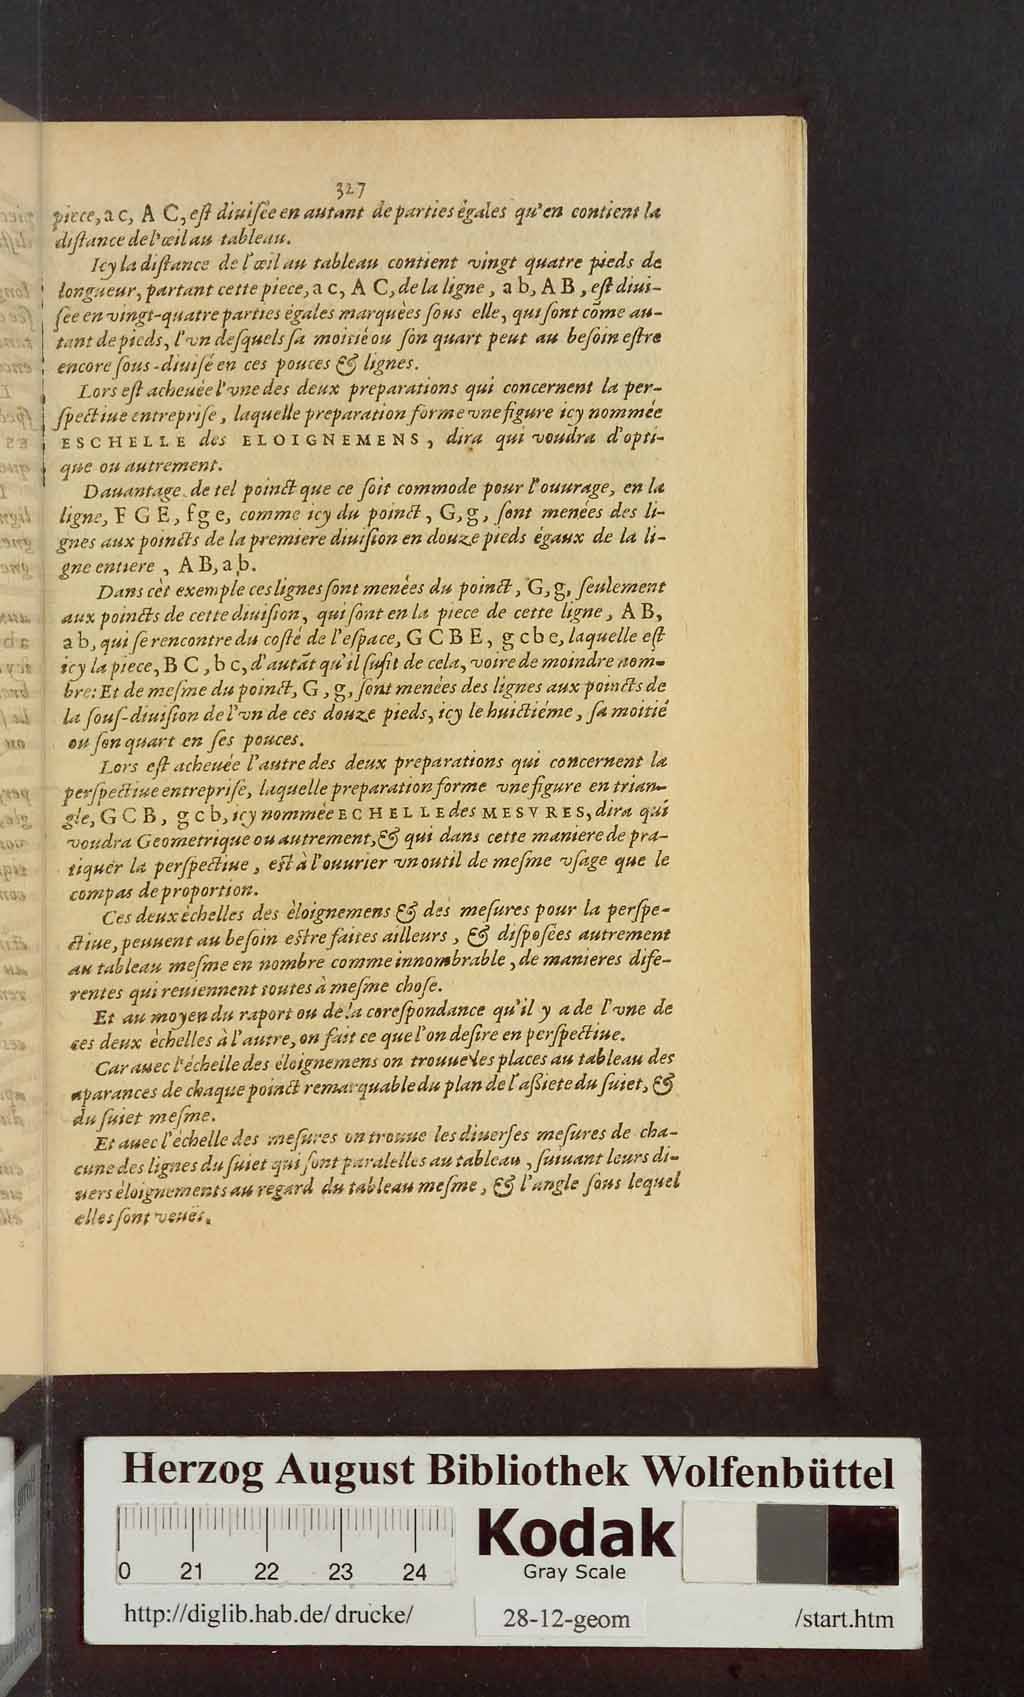 327
piece, a c, A C, eſt diuiſée en autant de parties égales qu'en contient la
diſtance de l'œil au tableau.
Icy la diſtance de l'œil au tableau contient vingt quatre pieds de
longueur, partant cette piece, a c, A C, de la ligne, a b, A B, eſt diui-
ſée en vingt-quatre parties égales marquèes ſous elle, qui ſont cōme au-
tant de pieds, l'vn deſquels ſa moitié ou ſon quart peut au beſoin eſtre
encore ſous-diuiſé en ces pouces & lignes.
Lors eſt acheuée l'vne des deux preparations qui concernent la per-
ſpectiue entrepriſe, laquelle preparation forme vne figure icy nommée
ESCHELLE des ELOIGNEMENS, dira qui voudra d'opti-
que ou autrement.
Dauantage de tel poinct que ce ſoit commode pour l'ouurage, en la
ligne, F G E, f g e, comme icy du poinct, G, g, ſont menées des li-
gnes aux poincts de la premiere diuiſion en douze pieds égaux de la li-
gne entiere, A B, a b.
Dans cèt exemple ces lignes ſont menées du poinct, G, g, ſeulement
aux poincts de cette diuiſion, qui ſont en la piece de cette ligne, A B,
a b, qui ſe rencontre du coſté de l'eſpace, G C B E, g c b e, laquelle eſt
icy la piece, B C, b c, d'autāt qu'il ſufit de cela, voire de moindre nom-
bre: Et de meſme du poinct, G, g, ſont menées des lignes aux poincts de
la ſouſ-diuiſion de l'vn de ces douze pieds, icy le huictiéme, ſa moitié
ou ſon quart en ſes pouces.
Lors eſt acheuée l'autre des deux preparations qui concernent la
perſpectiue entrepriſe, laquelle preparation forme vne figure en trian-
gle, G C B, g c b, icy nommée ECHELLE des MESVRES, dira qui
voudra Geometrique ou autrement, & qui dans cette maniere de pra-
tiquer la perſpectiue, eſt à l'ouurier vn outil de meſme vſage que le
compas de proportion.
Ces deux échelles des èloignemens & des meſures pour la perſpe-
ctiue, peuuent au beſoin eſtre faites ailleurs, & diſpoſées autrement
au tableau meſme en nombre comme innombrable, de manieres dife-
rentes qui reuiennent toutes à meſme choſe.
Et au moyen du raport ou de la coreſpondance qu'il y a de l'vne de
ces deux èchelles à l'autre, on fait ce que l'on deſire en perſpectiue.
Car auec l'échelle des éloignemens on trouue les places au tableau des
aparances de chaque poinct remarquable du plan de l'aſsiete du ſuiet, &
du ſuiet meſme.
Et auec l'échelle des meſures on trouue les diuerſes meſures de cha-
cune des lignes du ſuiet qui ſont paralelles au tableau, ſuiuant leurs di-
uers éloignements au regard du tableau meſme, & l'angle ſous lequel
elles ſont veuës.
Herzog August Bibliothek Wolfenbüttel
0 21 22 23 24
Kodak
Gray Scale
http://diglib.hab.de/drucke/ 28-12-geom /start.htm